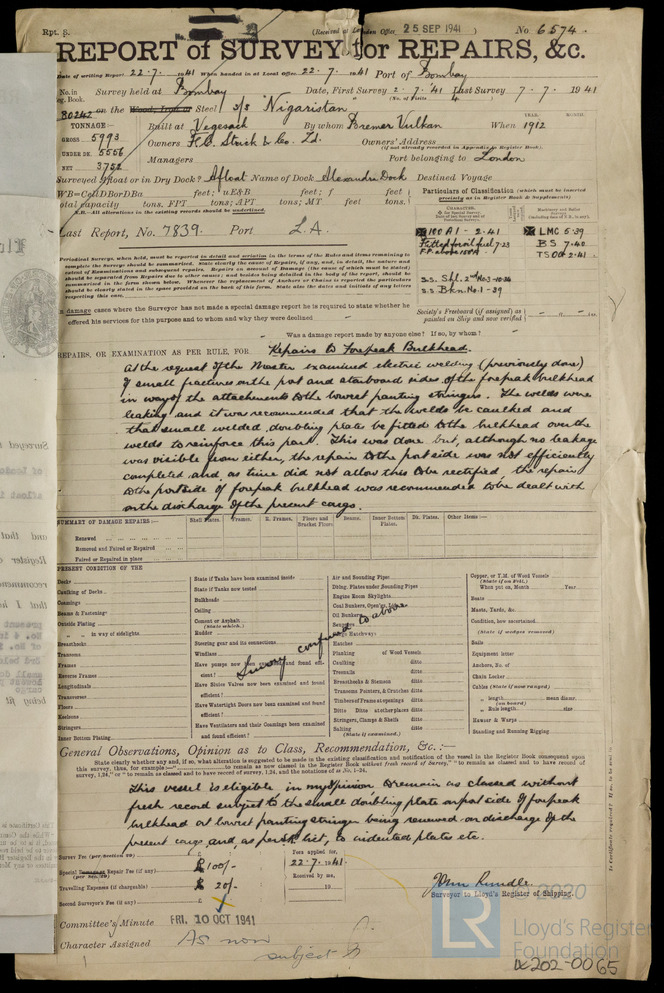 Rpt. 8.
(Received at London Office 25 SEP 1941 )
No 6574
REPORT of SURVEY for REPAIRS, &c.
Date of writing Report 22.7.1941 When handed in at Local Office 22.7.1941 Port of Bombay
No. in Reg. Book. Survey held at Bombay Date, First Survey 2.7.'41 Last Survey 7.7.1941
(No. of Visits 4 )
80242 on the Wood, Iron or Steel S/S "Nigaristan"
TONNAGE:—
GROSS 5993
UNDER DK. 5556
NET 3752
Built at Vegesack By whom Bremer Vulkan When 1912
YEAR. MONTH.
Owners F.C. Strick & Co. Ld. Owners' Address
(if not already recorded in Appendix to Register Book).
Managers Port belonging to London
Surveyed Afloat or in Dry Dock? Afloat Name of Dock Alexandra Dock Destined Voyage
WB=CellDBorDBa feet; uE&B feet; f feet
total capacity tons. FPT tons; APT tons; MT feet tons.
N.B.—All alterations in the existing records should be underlined.
Last Report, No. 7839. Port L.A.
Particulars of Classification (which must be inserted precisely as in Register Book & Supplements)
100 A1 - 2.41
Fitted for oil fuel 7-23
F.P. above 150°F
LMC 5.39
BS 7-40
TS OG 2.41
S.S. Shl. 2nd No.3-10-36
S.S Bkn. No.1-39
Society's Freeboard (if assigned) as painted on Ship and now verified
Periodical Surveys, when held, must be reported in detail and seriatim in the terms of the Rules and items remaining to complete the Survey should be summarized. State clearly the cause of Repairs, if any, and, in detail, the nature and extent of Examinations and subsequent repairs. Repairs on account of Damage (the cause of which must be stated) should be separated from Repairs due to other causes; and besides being detailed in the body of the report, should be summarized in the form shown below. Whenever the replacement of Anchors or Chains is reported the particulars should be clearly stated in the space provided on the back of this form. State also the dates and initials of any letters respecting this case.
In damage cases where the Surveyor has not made a special damage report he is required to state whether he offered his services for this purpose and to whom and why they were declined
Was a damage report made by anyone else? If so, by whom?
REPAIRS, OR EXAMINATION AS PER RULE, FOR Repairs to Forepeak Bulkhead.
At the request of the Master examined electric welding (previously done)
of small fractures on the port and starboard sides of the forepeak bulkhead
in way of the attachments to the lowest panting stringers. The welds were
leaking and it was recommended that the welds be caulked and
that small welded doubling plates be fitted to the bulkhead over the
welds to reinforce this part. This was done but, although no leakage
was visible from either, the repair to the port side was not efficiently
completed and as time did not allow this to be rectified the repairs
to the port side of forepeak bulkhead was recommended to be dealt with
on the discharge of the present cargo.
SUMMARY OF DAMAGE REPAIRS:—
Shell Plates. Frames. R. Frames. Floors and Bracket Floors Beams. Inner Bottom Plates. Dk. Plates. Other Items:—
Renewed
Removed and Faired or Repaired
Faired or Repaired in place
PRESENT CONDITION OF THE
Decks
Caulking of Decks
Coamings
Beams & Fastenings
Outside Plating
„ „ in way of sidelights
Breasthooks
Transoms
Frames
Reverse Frames
Longitudinals
Transverses
Floors
Keelsons
Stringers
Inner Bottom Plating
State if Tanks have been examined inside
State if Tanks now tested
Bulkheads
Ceiling
Cement or Asphalt
(State which.)
Rudder
Steering gear and its connections
Windlass
Have pumps now been examined and found efficient?
Have Sluice Valves now been examined and found efficient?
Have Watertight Doors now been examined and found efficient?
Have Ventilators and their Coamings been examined and found efficient?
Air and Sounding Pipes
Dblng. Plates under Sounding Pipes
Engine Room Skylights
Coal Bunkers, Open'gs, Lids
Oil Bunkers
Scuppers
Cargo Hatchways
Hatches
Planking of Wood Vessels
Caulking ditto
Treenails ditto
Breasthooks & Stemson ditto
Transoms Pointers, & Crutches ditto
Timbers of Frame at openings ditto
Ditto Ditto at other places ditto
Stringers, Clamps & Shelfs ditto
Salting ditto
(State if examined.)
Copper, or Y.M. of Wood Vessels
(State if on Felt.)
When put on, Month Year
Boats
Masts, Yards, &c.
Condition, how ascertained
(State if wedges removed)
Sails
Equipment letter
Anchors, No. of
Chain Locker
Cables (State if now ranged)
„ length mean diamr.
(on board)
„ Rule length size
Hawser & Warps
Standing and Running Rigging
Survey confined to above
General Observations, Opinion as to Class, Recommendation, &c.:—
State clearly whether any and, if so, what alteration is suggested to be made in the existing classification and notification of the vessel in the Register Book consequent upon this survey, thus, for example:—" to remain as now classed in the Register Book without fresh record of Survey," "to remain as classed and to have record of survey, 1,24," or "to remain as classed and to have record of survey, 1,24, and the notations of ss No. 1-24.
This vessel is eligible in my opinion to remain as classed without
fresh record subject to the small doubling plate on port side of forepeak
bulkhead at lowest panting stringer being renewed on discharge of the
present cargo, and, as per list, to indented plates etc.
Survey Fee (per section 20)
Special Damage or Repair Fee (if any) (per sec. 20) £ 100/-
Travelling Expenses (if chargeable) £ 20/-
Second Surveyor's Fee (if any)
Fees applied for,
22.7.1941.
Received by me,
19
John Rundle
Surveyor to Lloyd's Register of Shipping.
Committee's Minute FRI. 10 OCT 1941
Character Assigned As now
subject
© 2020
LR
Lloyd's Register
Foundation
W202-0065